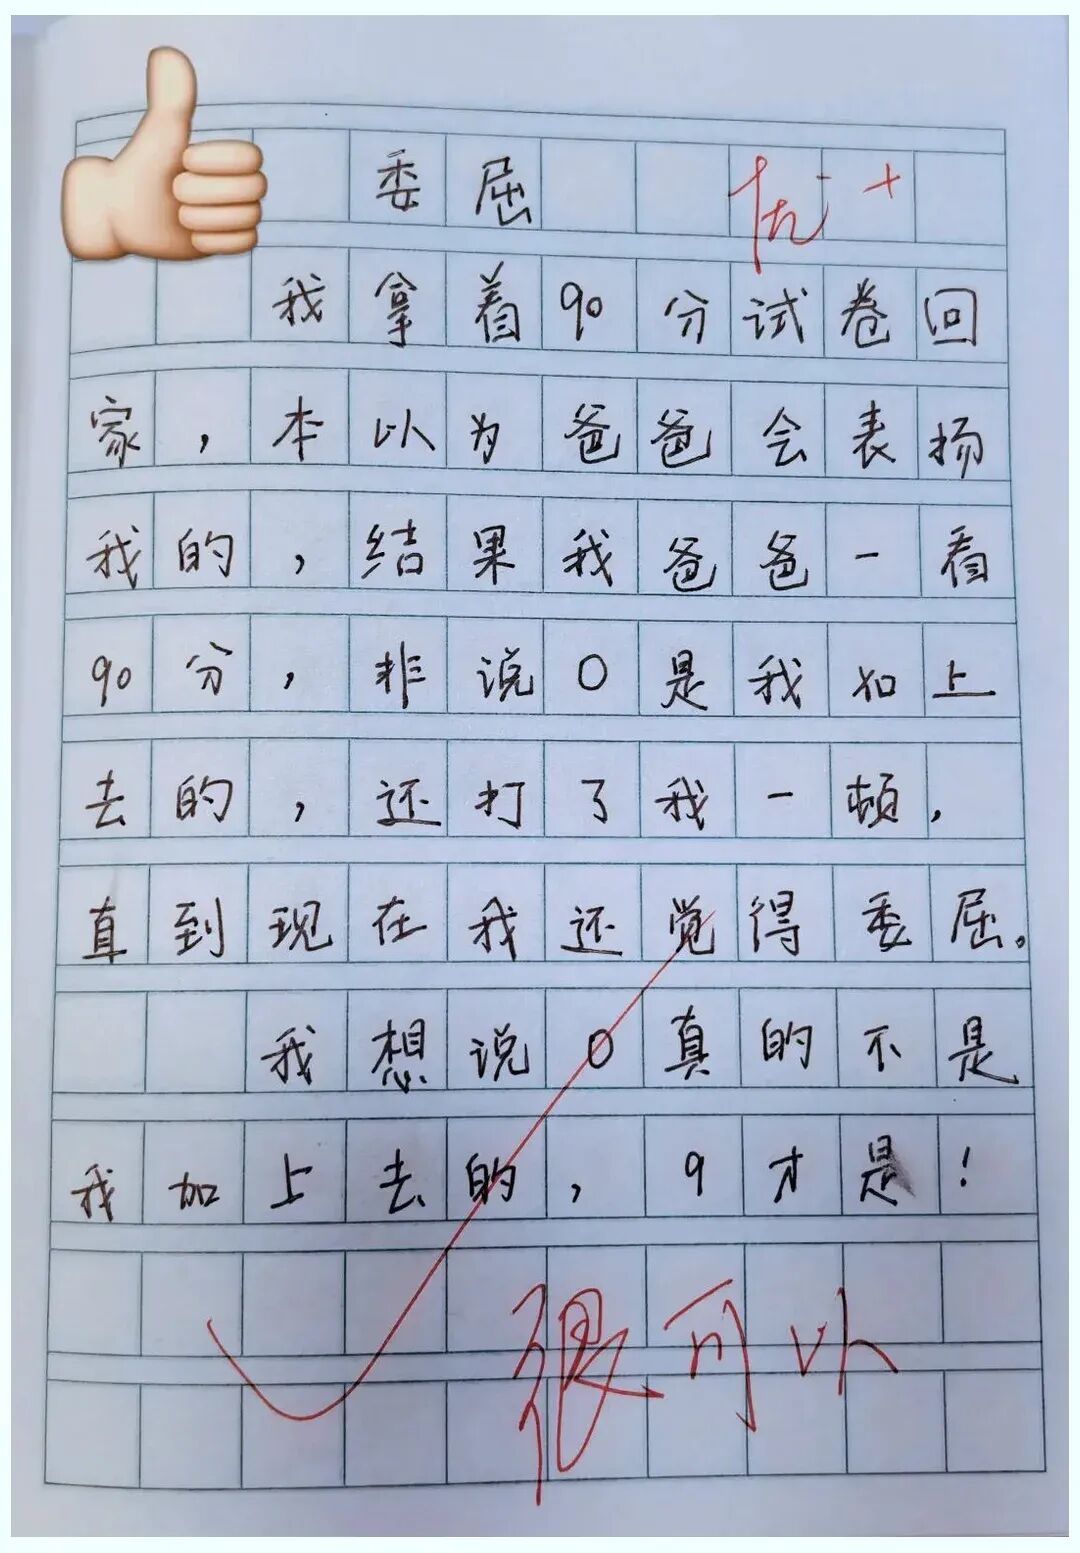 委屈 优+
我拿着90分试卷回
家，本以为爸爸会表扬
我的，结果我爸爸一看
90分，非说0是我如上
去的，还打了我一顿，
直到现在我还觉得委屈。
我想说0真的不是
我加上去的，9才是！
很可以